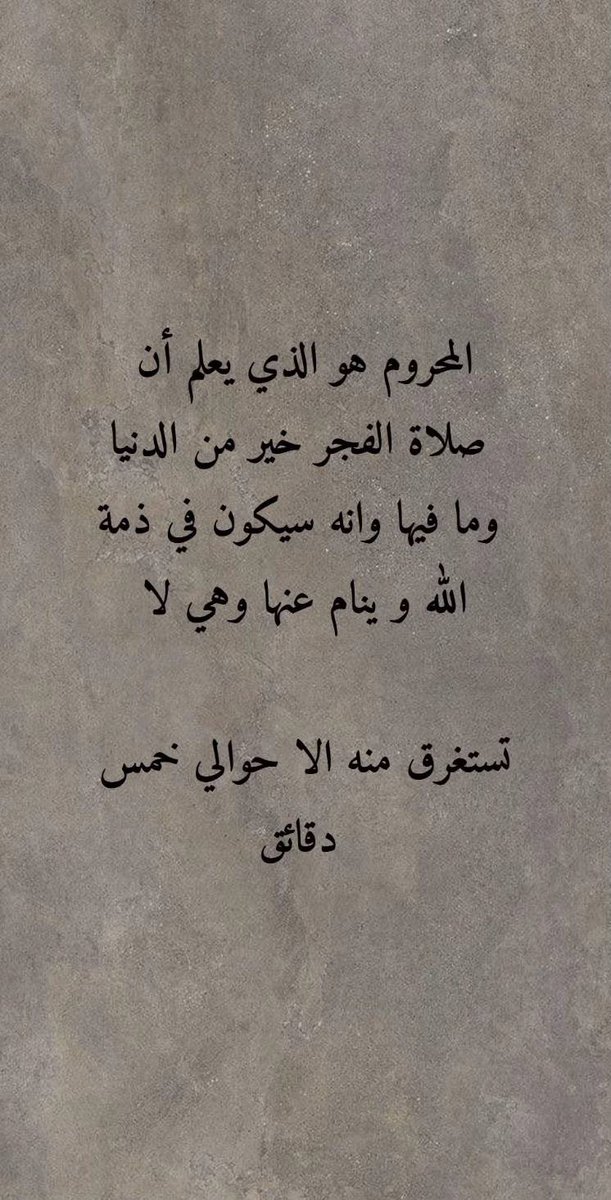 المحروم هو الذي يعلم أن
صلاة الفجر خير من الدنيا
وما فيها وانه سيكون في ذمة
الله و ينام عنها وهي لا
تستغرق منه الا حوالي خمس
دقائق